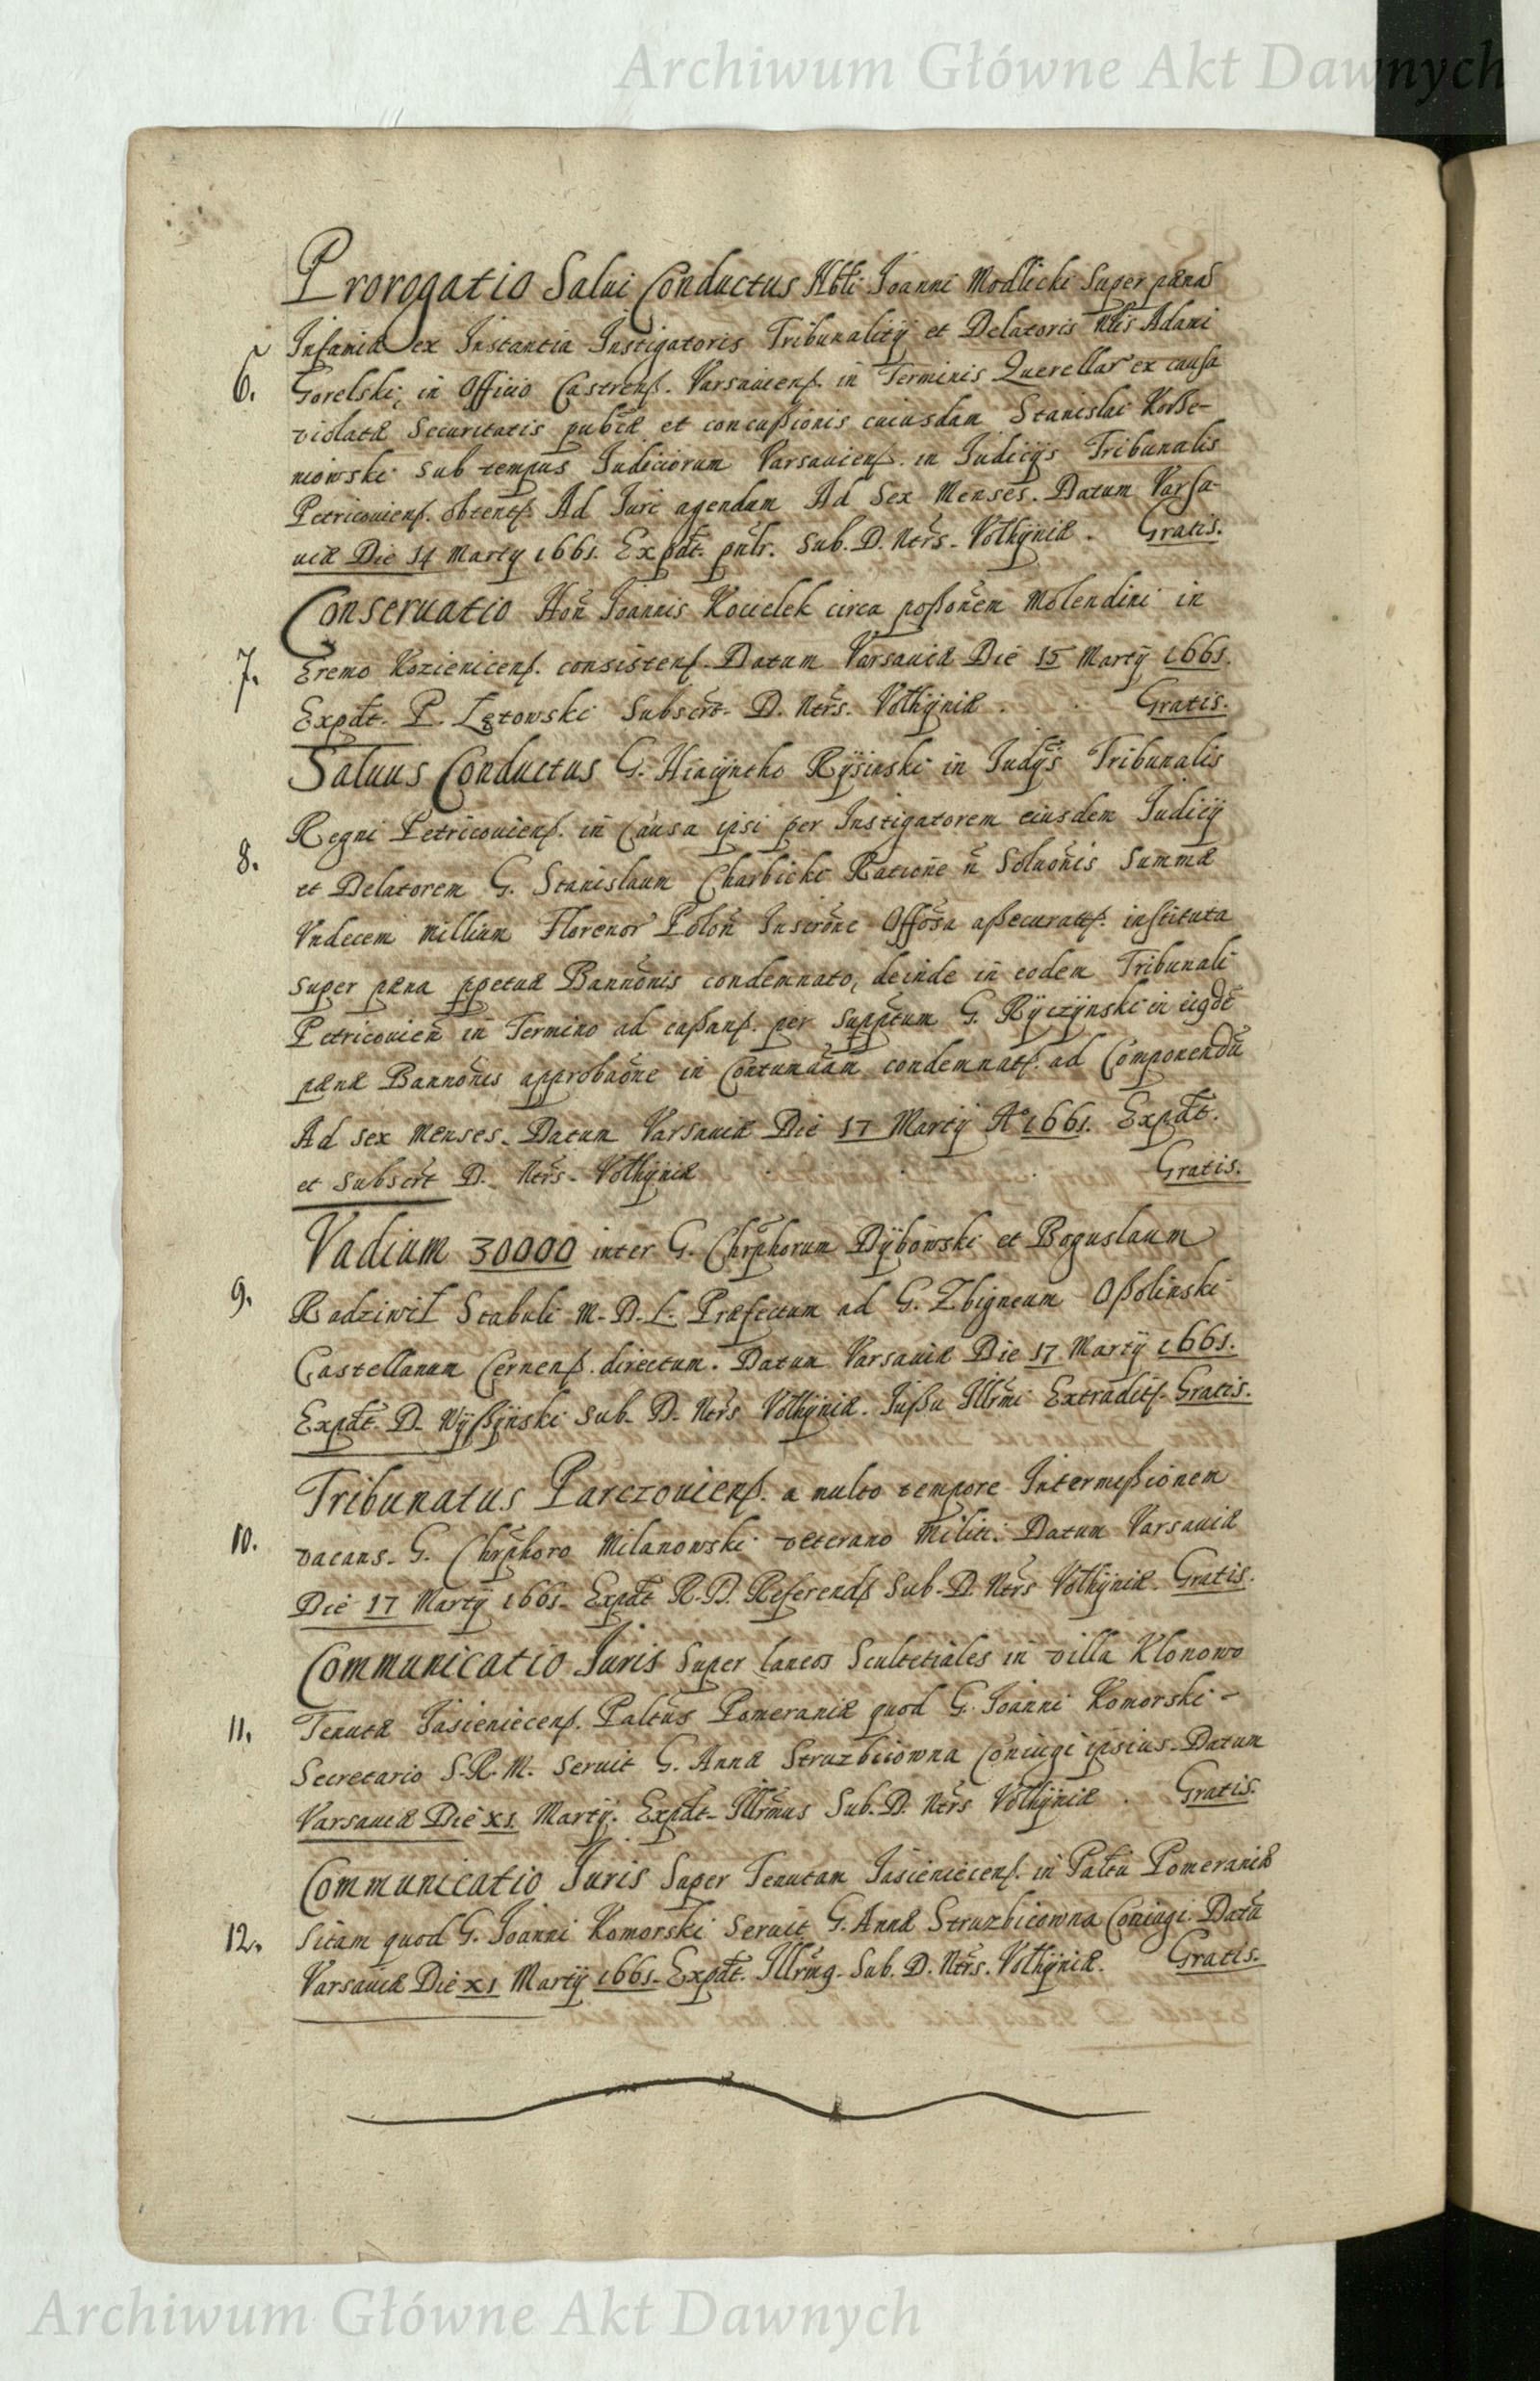 Archiwum Główne Akt Dawnych
Prorogatio Salui Conductus Nbli Joanni Modlicki Super pænas
Infamiæ ex Instantia Instigatoris Tribunalitÿ et Delatoris Nlis Adami
6. Gorelski, in Officio Castrens. Varsauiens. in Terminis Querellar ex causa
violatæ Securitatis pubcæ et concussionis cuiusdam Stanislai Kosse-
niowski sub tempus Iudiciorum Varsauiens. in Iudicÿs Tribunalis
Petricouiens. obtent. Ad Iure agendum Ad Sex Menses. Datum Varsa-
uiæ Die 14 Martÿ 1661. Expdt. pnlr. Sub. D. Ntrs. Volhÿniæ. Gratis.
Conseruatio Hon Joannis Kocielek circa possonem Molendini in
7. Eremo Kozieniecens. consistens. Datum Varsauiæ Die 15 Martÿ 1661.
Expdt. P. Lętowski Subscrt. D. Ntrs. Volhÿniæ. Gratis.
Saluus Conductus G. Hiacÿntho Rÿsinski in Iudÿs Tribunalis
Regni Petricouiens. in Causa ipsi per Instigatorem eiusdem Iudicÿ
8. et Delatorem G. Stanislaum Charbicki Ratione n Soluonis Summæ
Vndecem Millium Florenor Polon Inscrone Offosa assecurat. instituta
super pæna ppetuæ Bannonis condemnato, deinde in eodem Tribunali
Petricouien in Termino ad cassans. per Supptum G. Rÿczÿnski in eigdē
pænæ Bannonis approbaone in Contumaam condemnat. ad Componendū
Ad sex Menses. Datum Varsauiæ Die 17 Martÿ A° 1661. Expdt.
et Subscrt D. Ntrs. Volhÿniæ Gratis.
Vadium 30000 inter G. Chrphorum Dÿbowski et Boguslaum
9. Radziwił Stabuli M. D. L. Præfectum ad G. Zbigneum Ossolinski
Castellanum Cernens. directum. Datum Varsauiæ Die 17 Martÿ 1661.
Expdt. D. Wÿssÿnski Sub. D. Ntrs Volhÿniæ. Iussu Illrmi Extradit. Gratis.
Tribunatus Parczouiens. a multo tempore Intermissionem
10. vacans. G. Chrphoro Milanowski veterano Militi. Datum Varsauiæ
Die 17 Martÿ 1661. Expdt R. D. Referend. Sub. D. Ntrs Volhÿniæ. Gratis.
Communicatio Iuris Super laneos Scultetiales in villa Klonowo
11. Tenutæ Jasieniecens. Paltus Pomeraniæ quod G. Joanni Komorski
Secretario S. R. M. Seruit G. Annæ Struzbiczowna Coniugi ipsius. Datum
Varsauiæ Die XI Martÿ. Expdt. Illrmus Sub. D. Ntrs Volhÿniæ. Gratis.
Communicatio Iuris Super Tenutam Jasieniecens. in Paltu Pomeraniæ
12. Sitam quod G. Joanni Komorski Seruit G. Annæ Struzbicowna Coniugi. Datū
Varsauiæ Die XI Martÿ 1661. Expdt. Illrmg. Sub. D. Ntrs. Volhÿniæ. Gratis.
Archiwum Główne Akt Dawnych